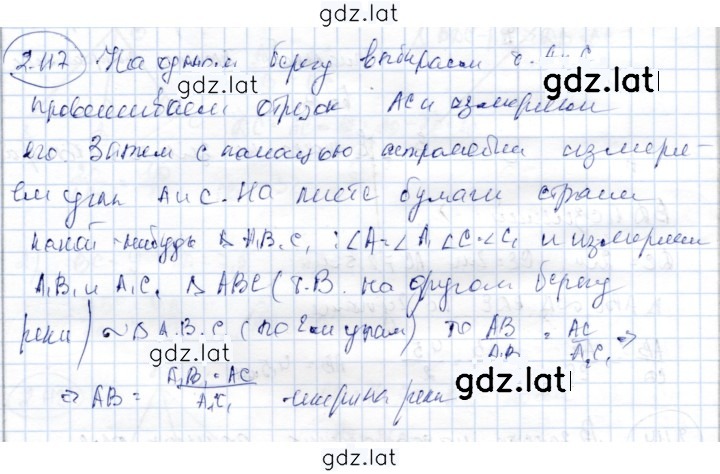 gdz.lat
2.117 На одном берегу выбираем т. A и C
gdz.lat
провешиваем отрезок AC и измеряем
его. Затем с помощью астролябии измеря-
ем углы A и C. На листе бумаги строим
какой-нибудь △ A₁B₁C₁ : ∠A=∠A₁ ∠C=∠C₁ и измеряем
A₁B₁ и A₁C₁ △ ABC (т.B. на другом берегу
реки) ~ △ A₁B₁C₁ (по 2-ем углам) то AB/A₁B₁ = AC/A₁C₁ ⇒
gdz.lat
gdz.lat
⇒ AB = A₁B₁·AC/A₁C₁ - ширина реки
gdz.lat